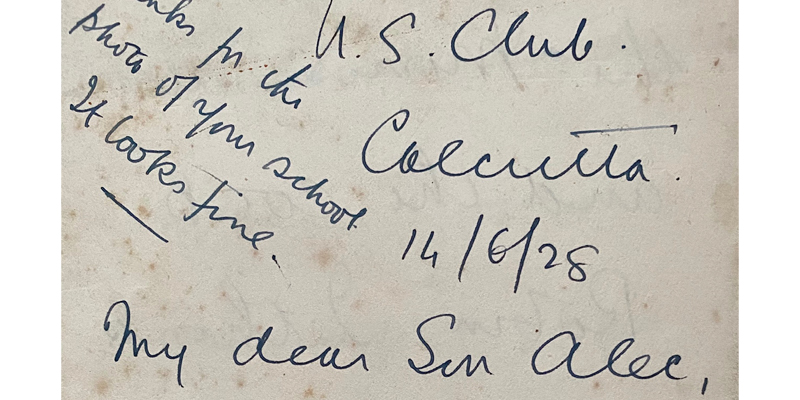 U.S. Club.
Calcutta.
14/6/28
for the
photo of your school.
It looks fine.
My dear Son Alec,